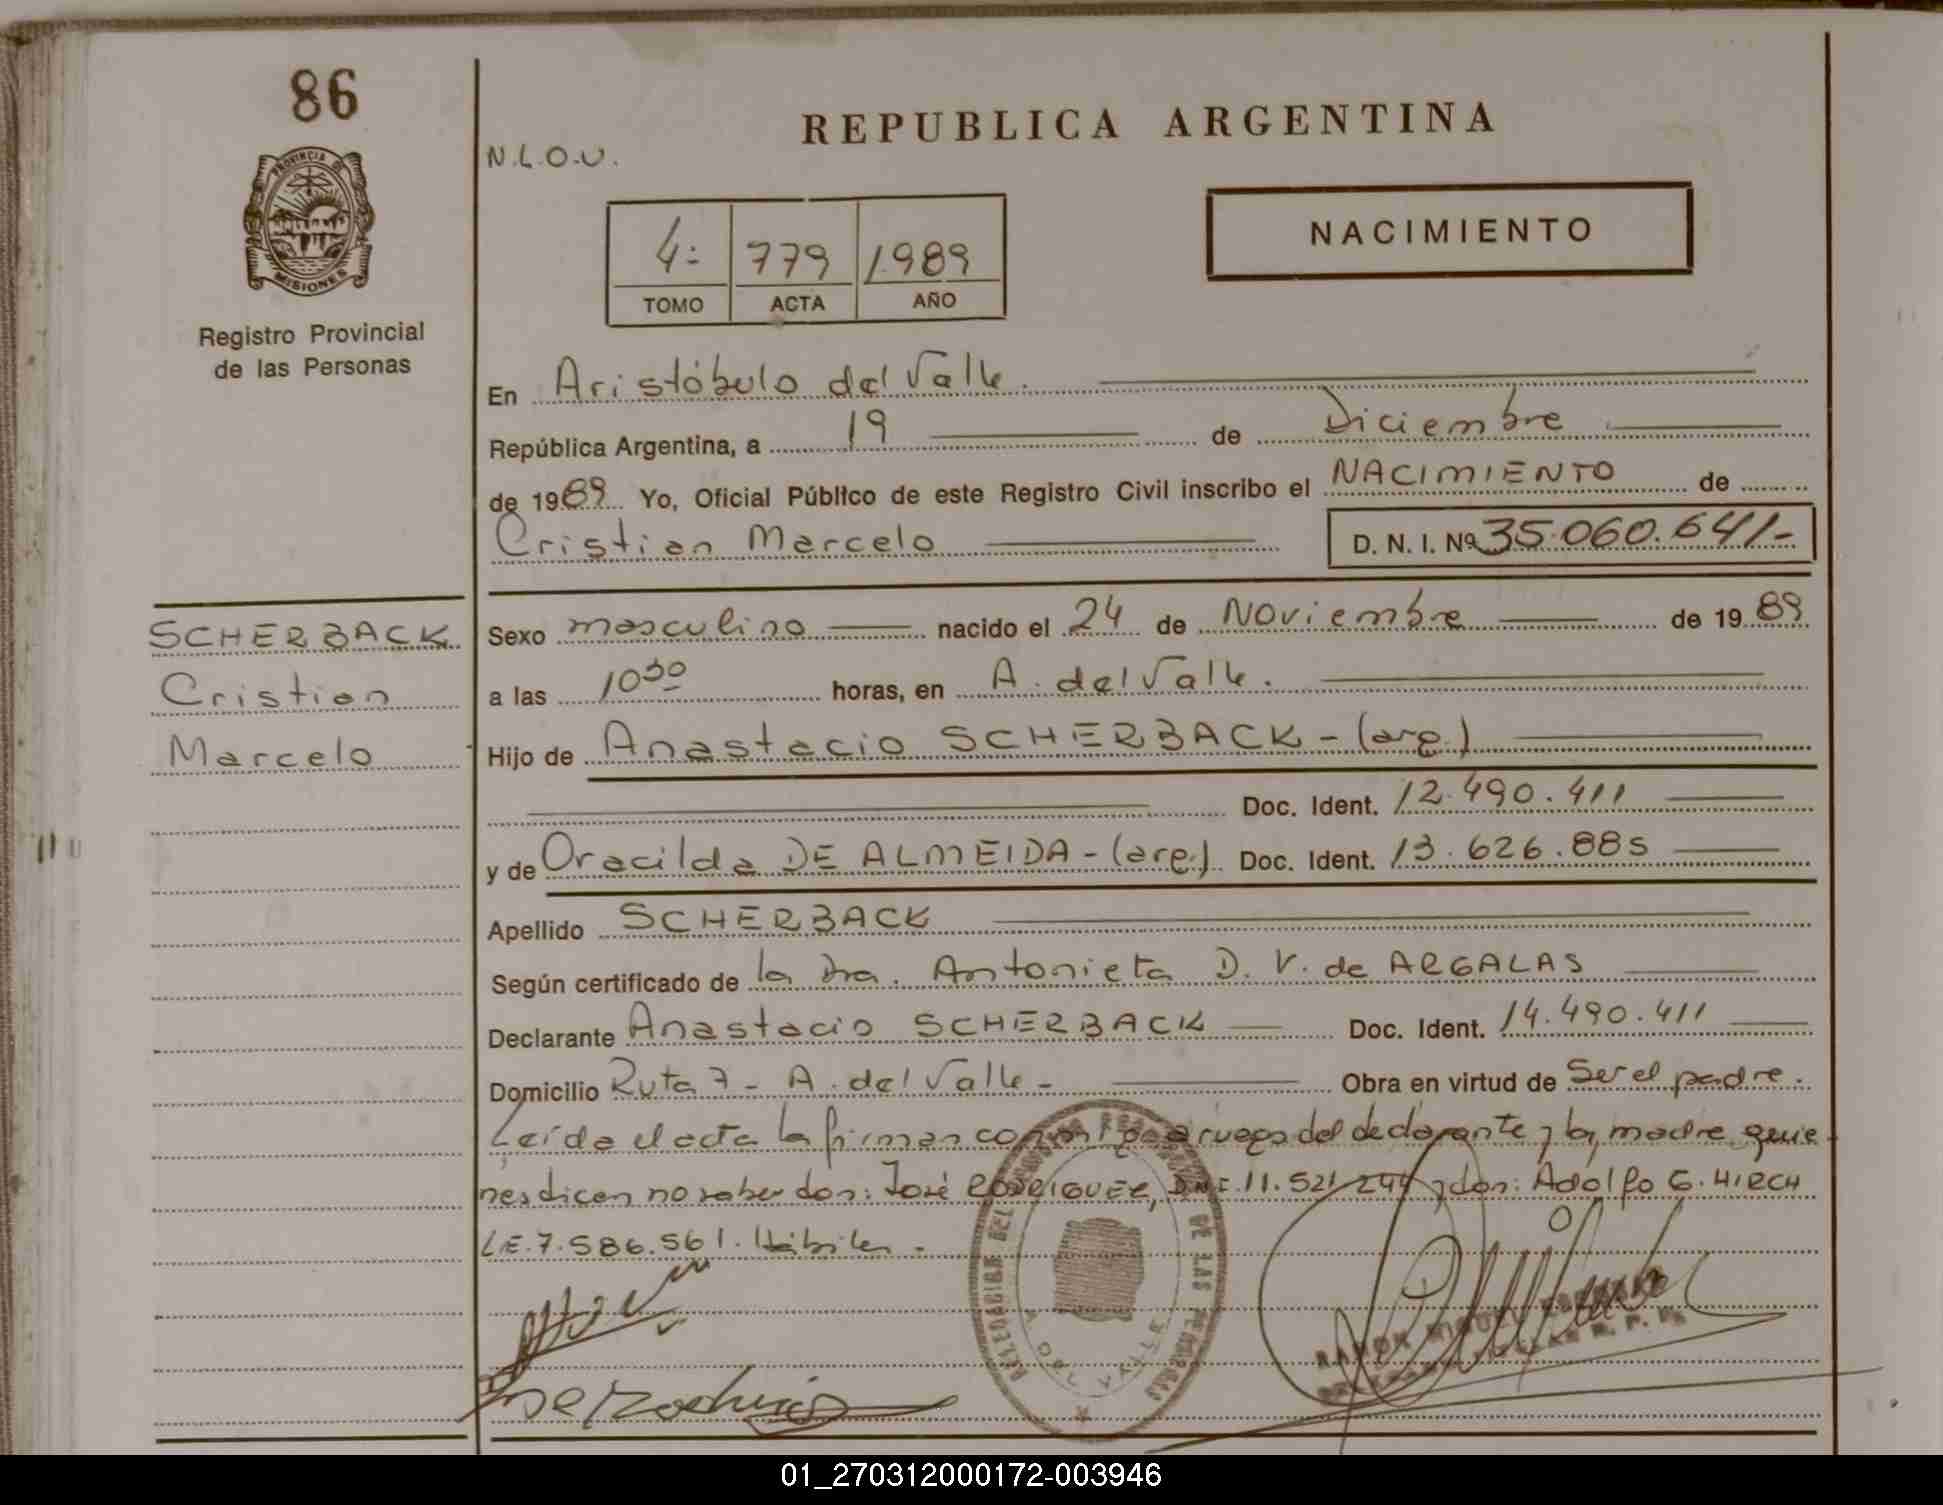 86
REPUBLICA ARGENTINA
N.L.O.U.
PROVINCIA DE
MISIONES
Registro Provincial
de las Personas
4: 779 1989
TOMO ACTA AÑO
NACIMIENTO
En Aristóbulo del Valle.
República Argentina, a 19 de Diciembre
de 1989 Yo, Oficial Público de este Registro Civil inscribo el NACIMIENTO de
Cristian Marcelo D. N. I. Nº 35.060.641/-
SCHERBACK
Cristian
Marcelo
Sexo masculino nacido el 24 de Noviembre de 1989
a las 10 30 horas, en A. del Valle.
Hijo de Anastacio SCHERBACK - (arg.)
Doc. Ident. 12.490.411
y de Oracilda DE ALMEIDA - (arg.) Doc. Ident. 13.626.885
Apellido SCHERBACK
Según certificado de la Dra. Antonieta D. V. de ARGALAS
Declarante Anastacio SCHERBACK Doc. Ident. 14.490.411
Domicilio Ruta 7 - A. del Valle - Obra en virtud de Ser el padre.
Leída el acta la firman conmigo a ruego del declarante y la madre quie-
nes dicen no saber don: José RODRIGUEZ, DNI. 11.521.244 y don: Adolfo G. HIRCH
LE. 7.586.561. Hábiles.
DELEGACION DEL REGISTRO DE LAS PERSONAS
A. DEL VALLE
RAMON MIGUEL
01_270312000172-003946